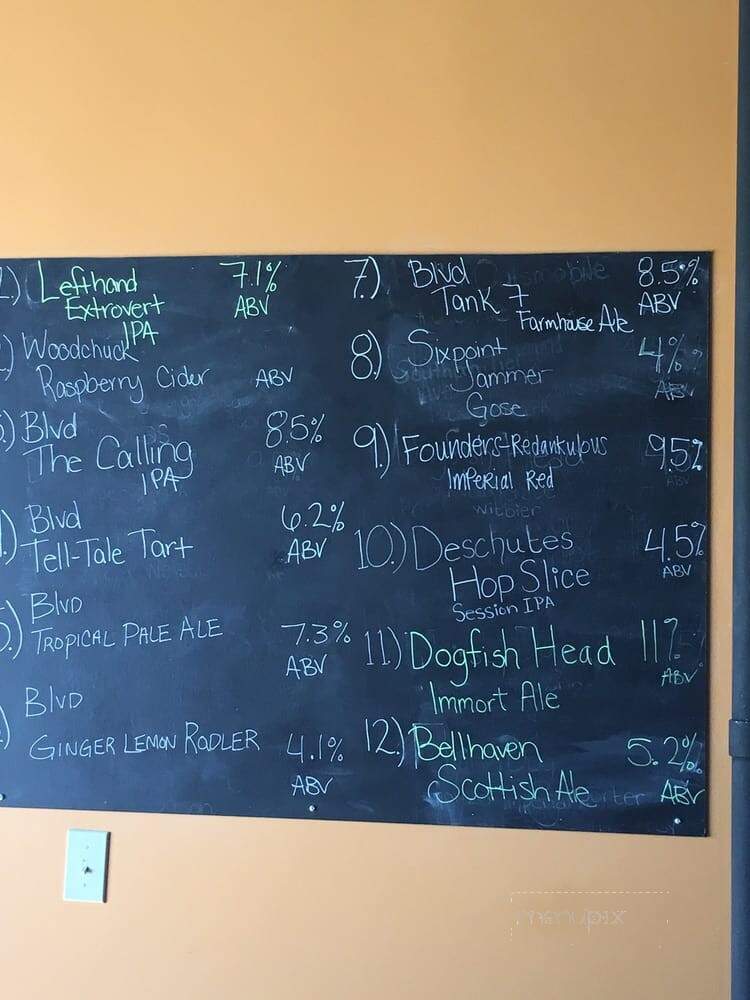 Lefthand 7.1%
Extrovert ABV
IPA
Woodchuck
Raspberry Cider ABV
Blvd 8.5%
The Calling ABV
IPA
Blvd 6.2%
Tell-Tale Tart ABV
Blvd
TROPICAL PALE ALE 7.3%
ABV
Blvd
GINGER LEMON RADLER 4.1%
ABV
7.) Blvd 8.5%
Tank 7 ABV
Farmhouse Ale
8.) Sixpoint 4%
Jammer ABV
Gose
9.) Founders-Redankulous 9.5%
Imperial Red ABV
witbier
10.) Deschutes 4.5%
Hop Slice ABV
Session IPA
11.) Dogfish Head 11%
Immort Ale ABV
12.) Bellhaven 5.2%
Scottish Ale ABV